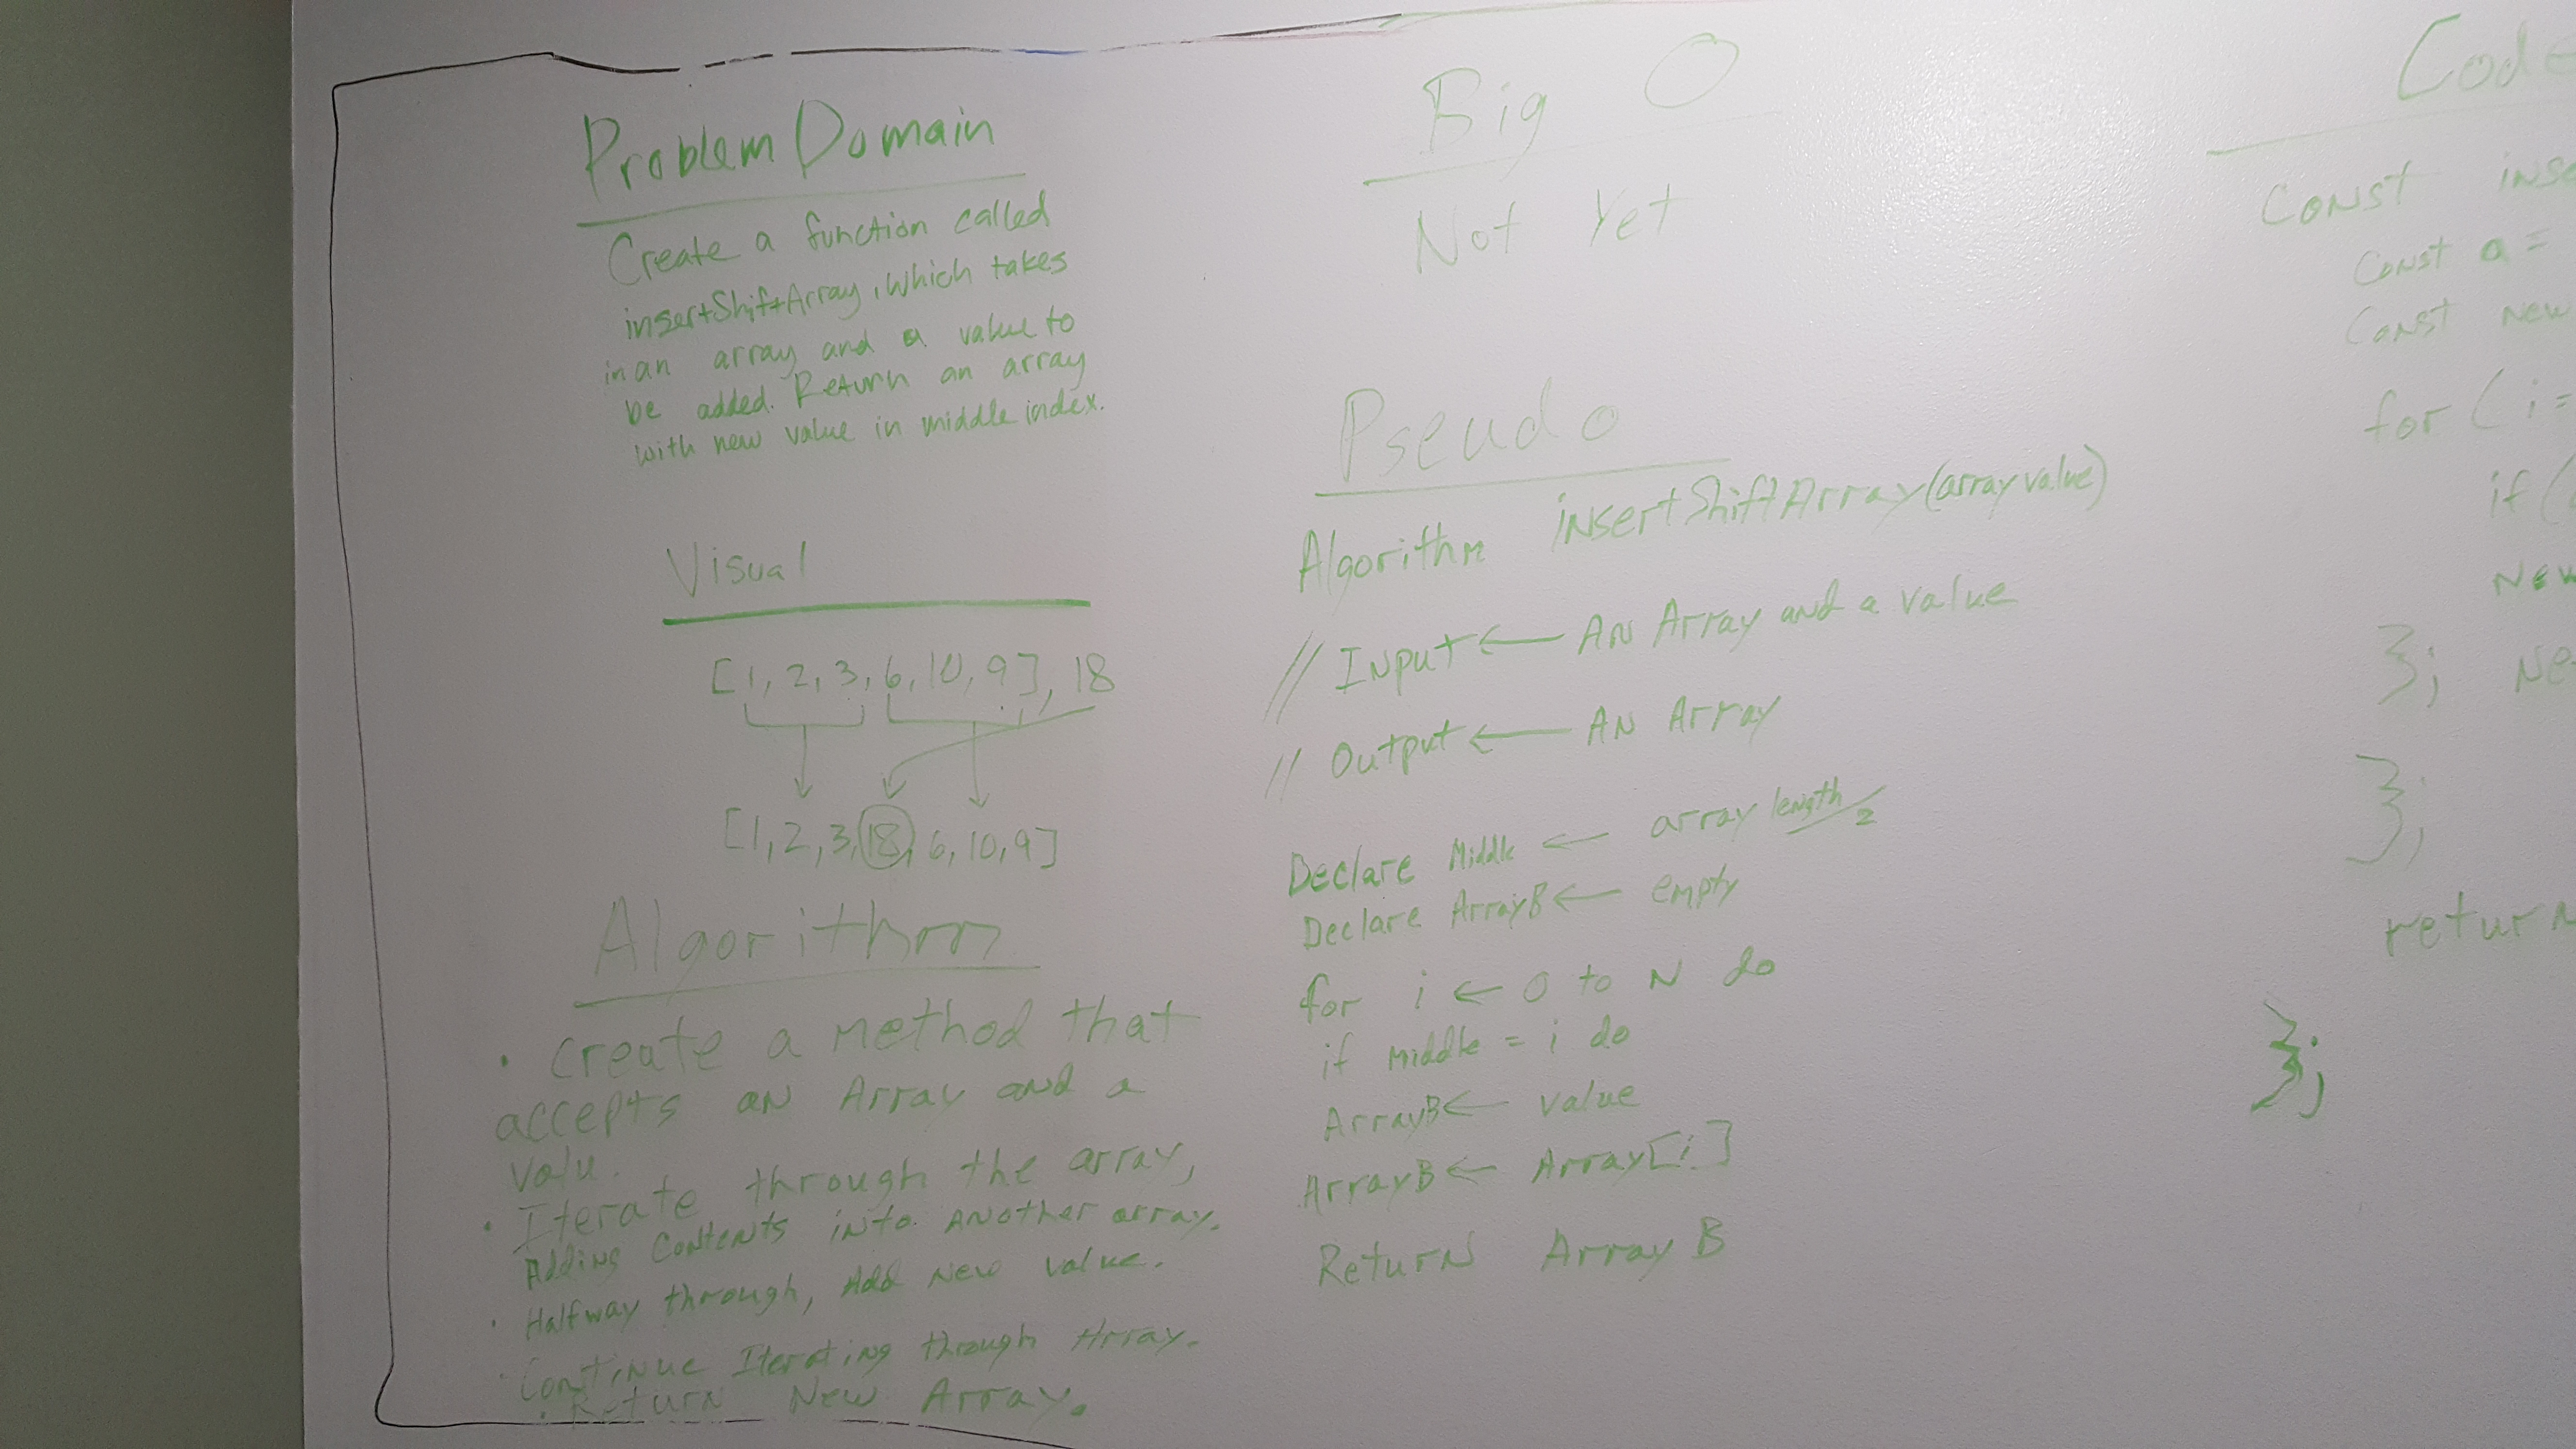 Problem Domain
Create a function called
insertShiftArray, which takes
in an array and a value to
be added. Return an array
with new value in middle index.
Visual
[1, 2, 3, 6, 10, 9], 18
[1, 2, 3, 18, 6, 10, 9]
Algorithm
· Create a method that
accepts an Array and a
valu.
· Iterate through the array,
Adding contents into Another array.
· Halfway through, Add New value.
· Continue Iterating through Array.
· Return New Array.
Big O
Not Yet
Pseudo
Algorithm insertShiftArray(array value)
// Input ← An Array and a value
// Output ← An Array
Declare Middle ← array length/2
Declare ArrayB ← empty
for i ← 0 to N do
if middle = i do
ArrayB ← value
ArrayB ← Array[i]
Return Array B
Code
Const inse
Const a =
Const new
for ( i =
if (
New
}; Ne
};
return
};